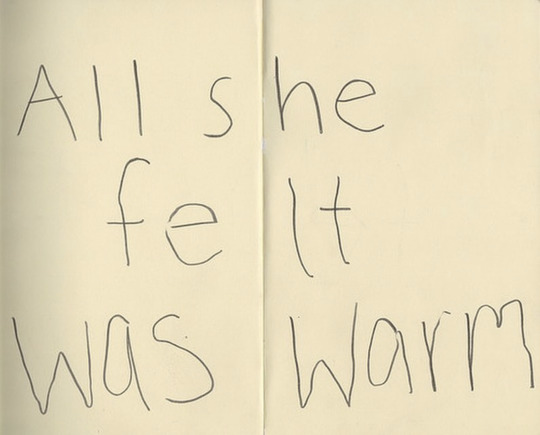 All she
felt
was warm